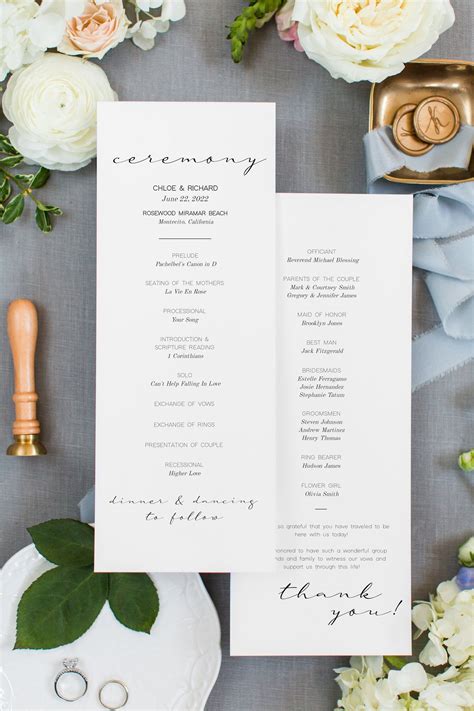 ceremony
CHLOE & RICHARD
June 22, 2022
ROSEWOOD MIRAMAR BEACH
Montecito, California
PRELUDE
Pachelbel's Canon in D
SEATING OF THE MOTHERS
La Vie En Rose
PROCESSIONAL
Your Song
INTRODUCTION &
SCRIPTURE READING
1 Corinthians
SOLO
Can't Help Falling In Love
EXCHANGE OF VOWS
EXCHANGE OF RINGS
PRESENTATION OF COUPLE
RECESSIONAL
Higher Love
dinner & dancing
to follow
OFFICIANT
Reverend Michael Blessing
PARENTS OF THE COUPLE
Mark & Courtney Smith
Gregory & Jennifer James
MAID OF HONOR
Brooklyn Jones
BEST MAN
Jack Fitzgerald
BRIDESMAIDS
Estelle Ferragamo
Josie Hernandez
Stephanie Tatum
GROOMSMEN
Steven Johnson
Andrew Martinez
Christopher James
RING BEARER
Hudson James
FLOWER GIRL
Olivia Smith
so grateful that you have traveled to be
here with us today!
honored to have such a wonderful group
and family to witness our vows and
support us through this life!
thank
you!